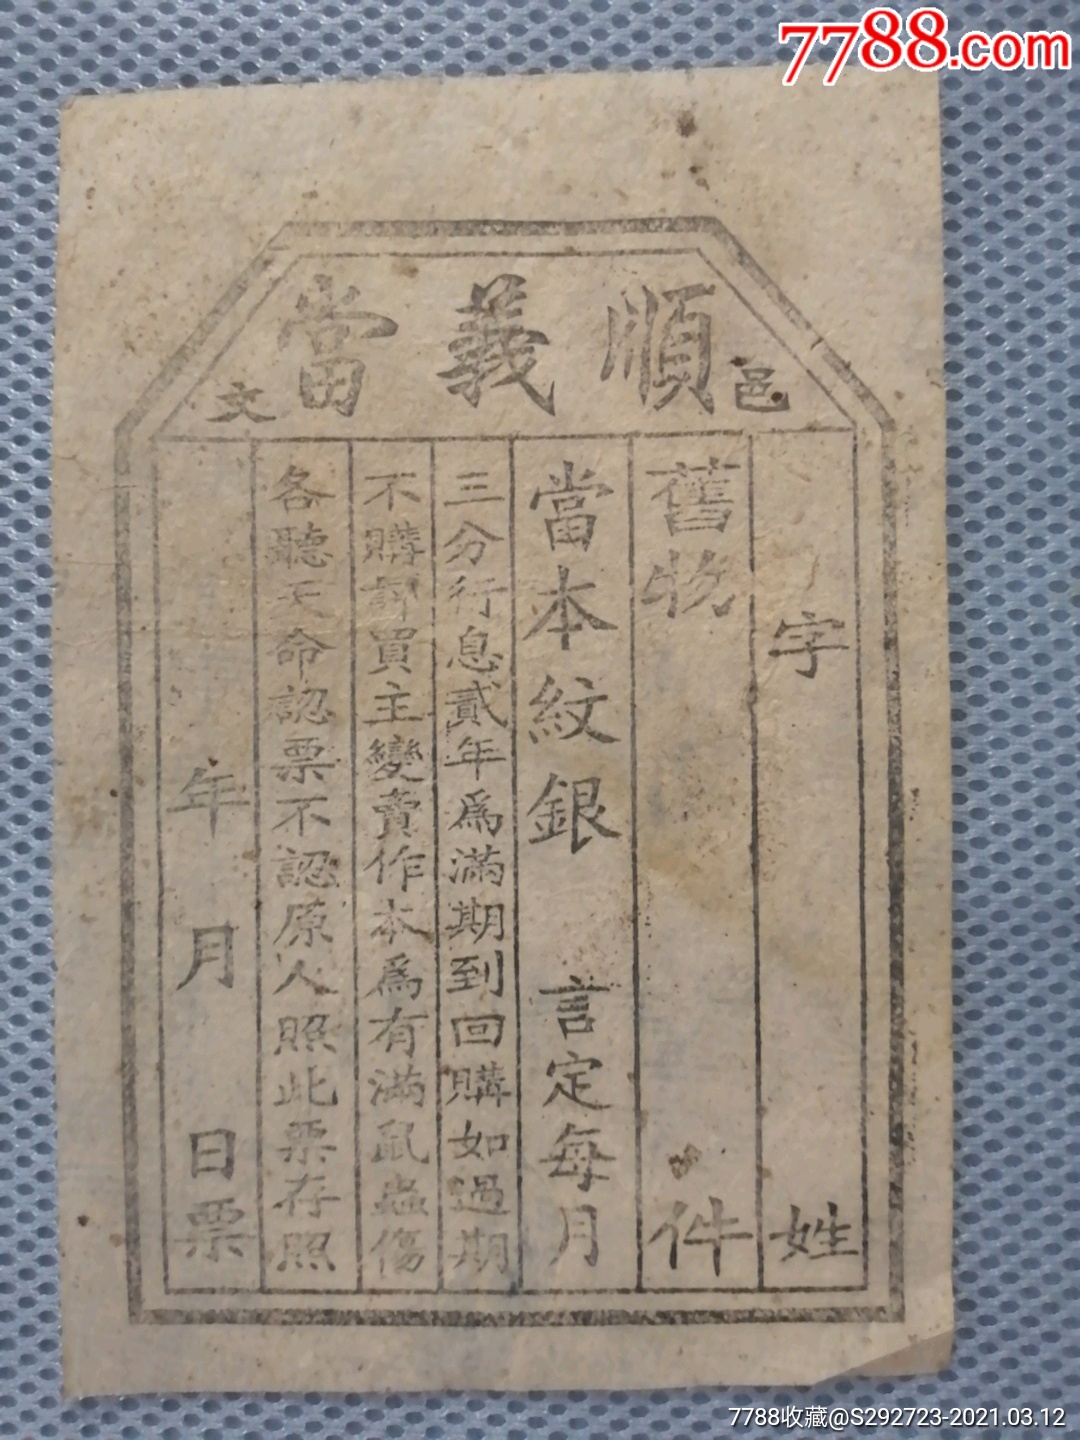 7788.com
順義當
邑
文
字 姓
舊物 件
當本紋銀 言定每月
三分行息貳年爲滿期到回購如過期
不購許買主變賣作本爲有滿鼠蟲傷
各聽天命認票不認原人照此票存照
年 月 日票
7788收藏@S292723-2021.03.12